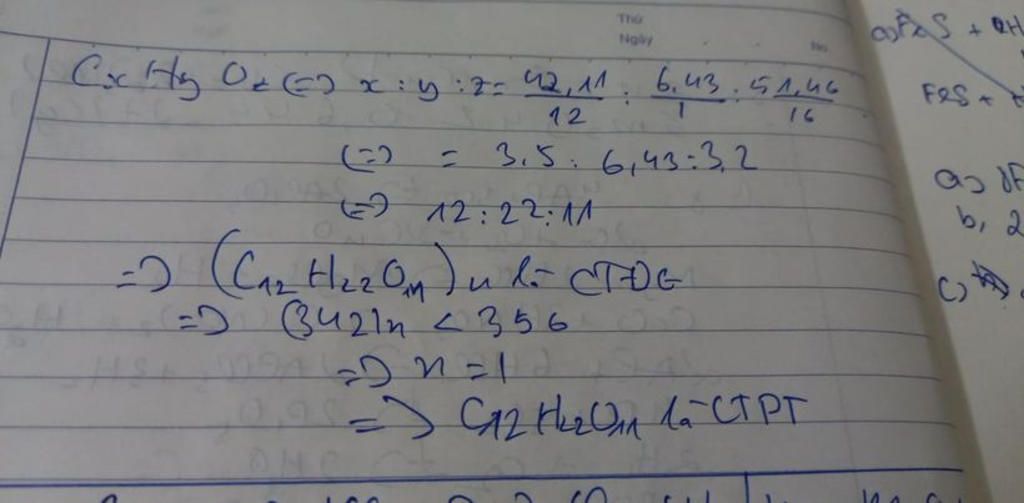 Thứ
Ngày
No
CxHyOz (=) x : y : z = 42,11/12 : 6,43/1 : 51,46/16
(=) = 3,5 : 6,43 : 3,2
(=) 12 : 22 : 11
=> (C12H22O11)n là CTĐG
=> (342)n < 356
=> n = 1
=> C12H22O11 là CTPT
F2S +
a)
b, 2
c)